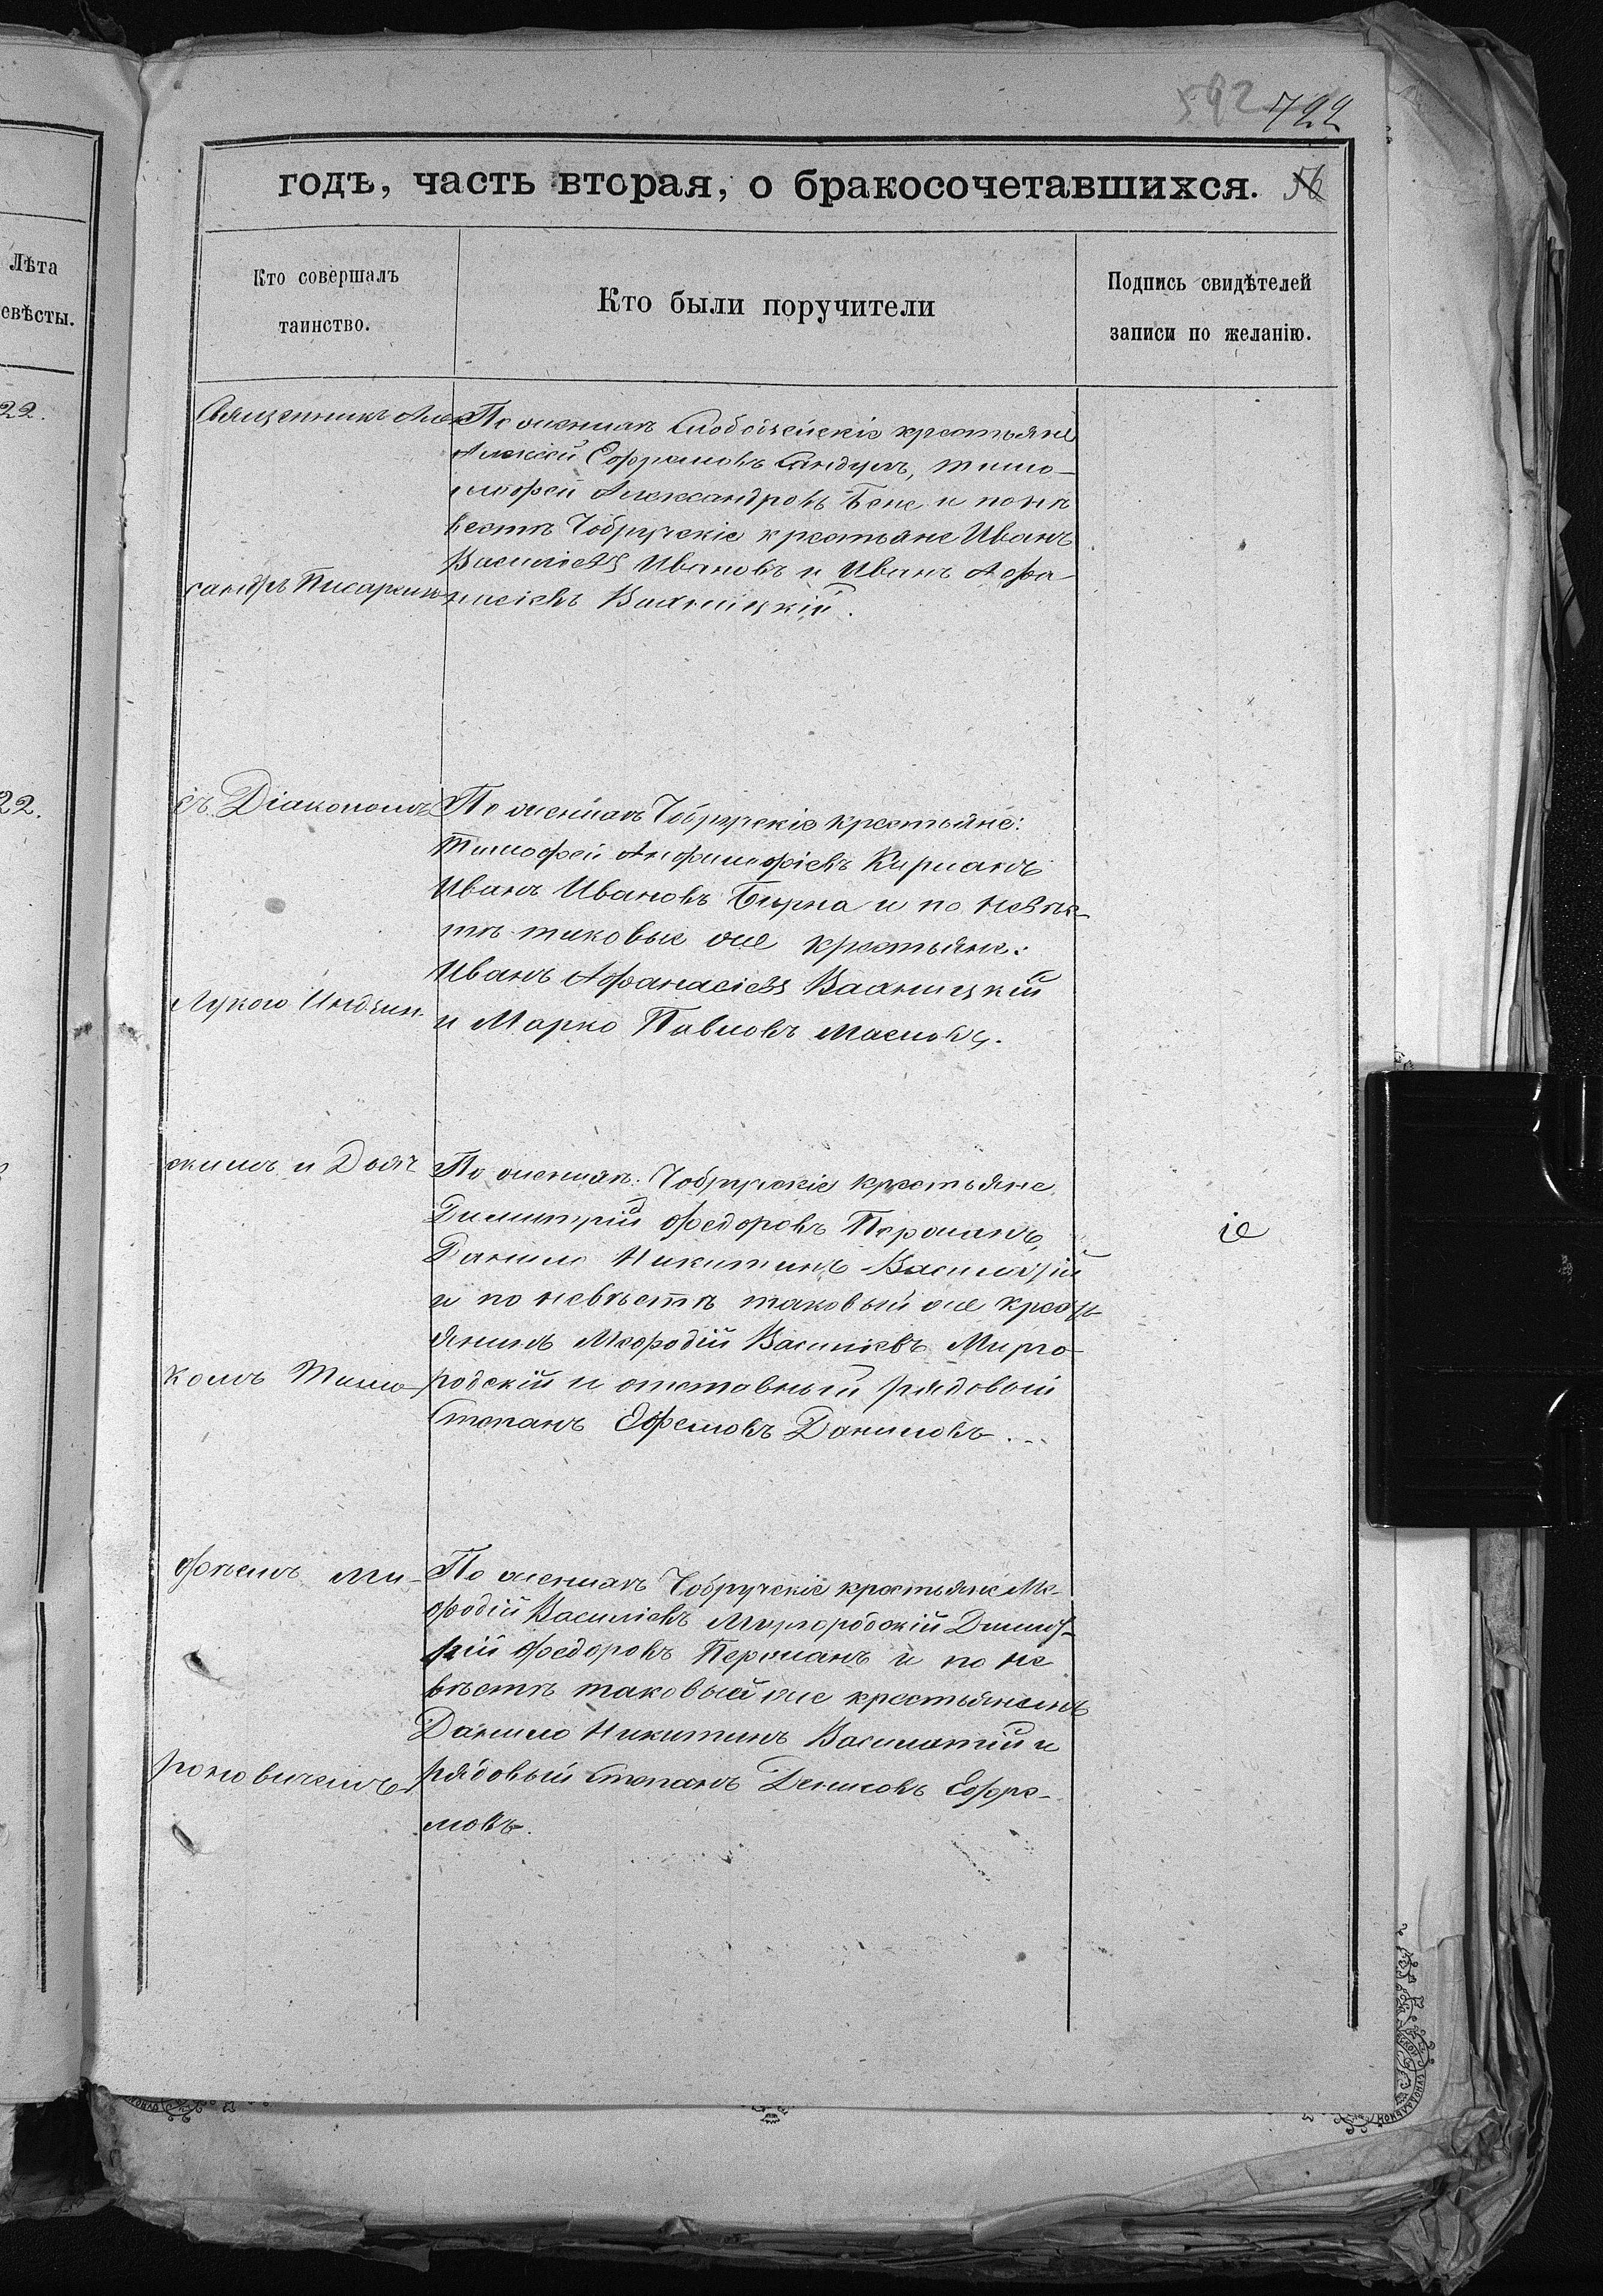 592 722
годъ, часть вторая, о бракосочетавшихся. 56
Лѣта
евѣсты.
Кто совершалъ
таинство.
Кто были поручители
Подпись свидѣтелей
записи по желанію.
22.
Священникъ Алек
сандръ Писаржев
По женихѣ Слободзейскіе крестьяне
Алексѣй Ефремовъ Сандулъ, Тимо-
фей Александровъ Бене и по не
вестѣ Чобручскіе крестьяне Иванъ
Василіевъ Ивановъ и Иванъ Афа
насіевъ Вахницкій.
22.
съ Діакономъ
Лукою
По женихѣ Чобручскіе крестьяне:
Тимофей Кирманъ
Иванъ Ивановъ Бырка и по невѣс-
тѣ таковые же крестьяне:
Иванъ Афанасіевъ Вахницкій
и Марко Павловъ Масловъ.
скимъ и Дьяч
комъ Тимо-
По женихѣ: Чобручскіе крестьяне
Димитрій Федоровъ Перманъ,
Данило Никитинъ Василатій
и по невѣстѣ таковый же кресть-
янинъ Мефодій Василіевъ Мирго-
родскій и отставный рядовый
Степанъ Ефремовъ Даниловъ.
іе
фѣемъ Ми-
роновичемъ
По женихѣ Чобручскіе крестьяне Ме-
фодій Василіевъ Миргородскій Димит-
рій Федоровъ Перманъ и по не
вѣстѣ таковый же крестьянинъ
Данило Никитинъ Василатій и
рядовый Степанъ Денисовъ Ефре-
мовъ.